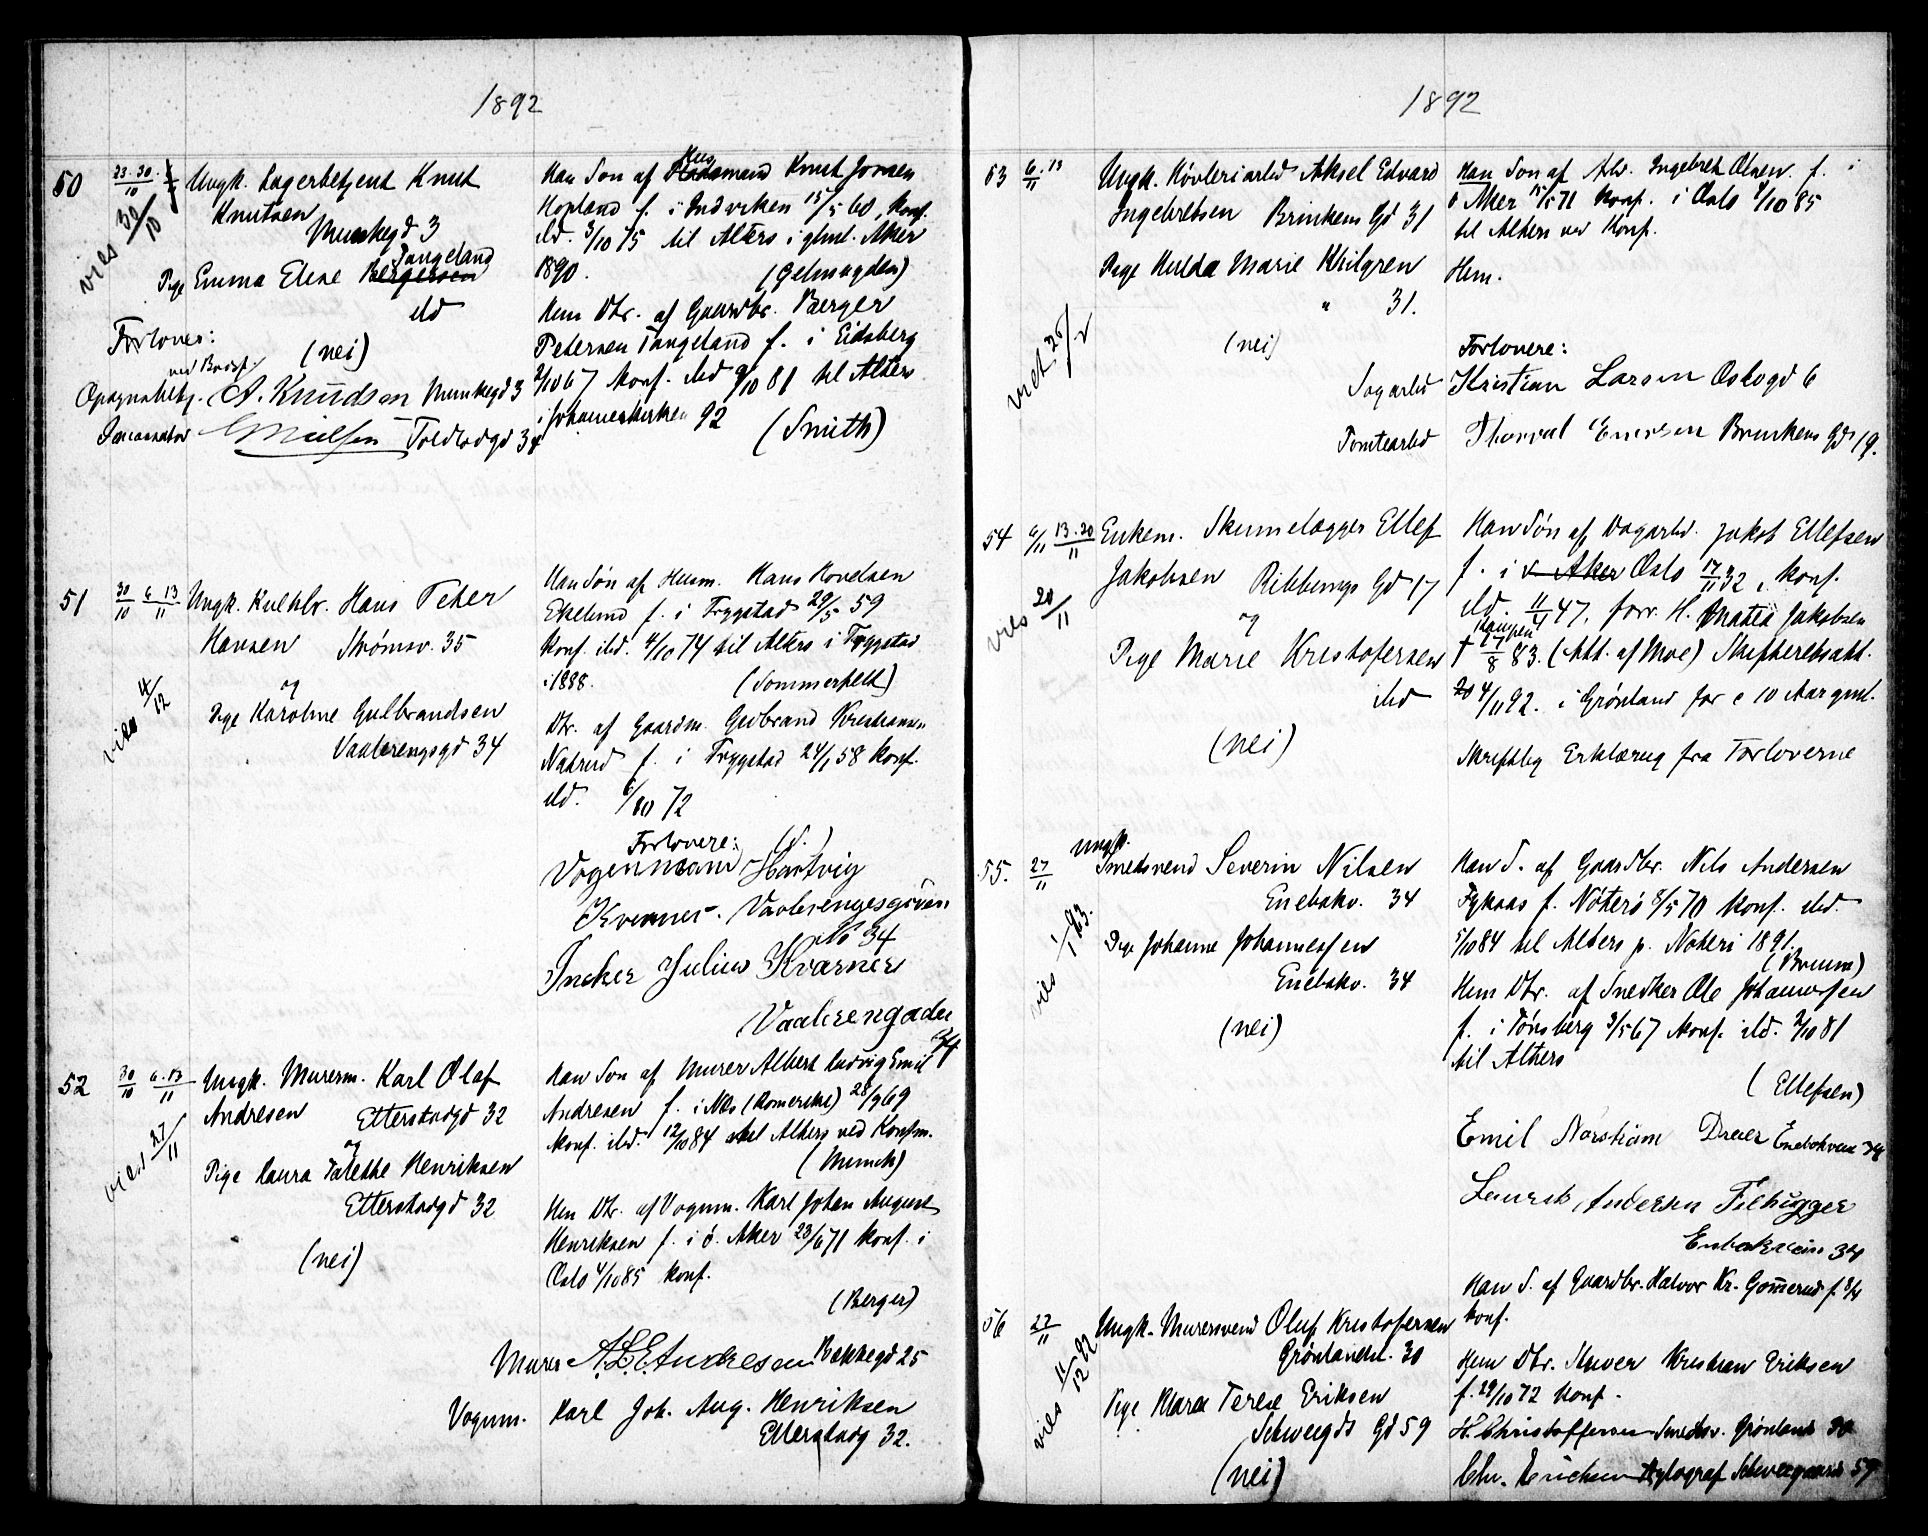 1892
50 23. 30. 7
10 11 Ungk. Lagerbetjent Knut
Knutsen
Munkegd 3
vies 30/10
Tangeland
Pige Emma Elise Bergersen
ibd
Forlover:
(nei)
A. Knudsen Munkegd 3
Toldbodgd 34
Han Søn af Husmand Knut Jonsen
Hopland f. i Indviken 15/5 60, konf.
ibd. 3/10 75 til Alters i gaml. Aker
1890. (Gelmuyden)
Hun Dtr. af Gaardbr. Berger
Petersen Tangeland f. i Eidsberg
2/10 67 konf. ibd 9/10 81 til Alters
i Johanneskirken 92 (Smith)
51 30/10 6 13/11 Ungk. Kulhbr. Hans Peter
Hansen Strømsv. 35
og
vies 4/12
Pige Karoline Gulbrandsen
Vaalerengsgd 34
Han Søn af Husm. Hans Hovelsen
Eklund f. i Trygstad 29/5 59
konf. ibd. 4/10 74 til Alters i Trygstad
i 1888. (Sommerfelt)
Dtr. af Gaardm. Gulbrand Kristiansen
f. i Trygstad 24/1 58 konf.
ibd. 6/10 72
Forlovere: (S.)
Vognmand Hartvig
Kverner. Vaalerengesgaden
No 34
Julius Kværner
Vaalerengaden
34
52 30/10 6. 13/11 Ungk. Murerm. Karl Olaf
Andresen Etterstadgd 32
og
vies 27/11
Pige Laura Valethe Henriksen
Etterstadgd 32
(nei)
Han Søn af Murer Albert Ludvig Emil
Andresen f. i Nes (Romerike) 28/9 69
konf. ibd. 12/10 84 til Alters ved Konfm.
(Munch)
Hun Dtr. af Vognm. Karl Johan August
Henriksen f. i ø. Aker 23/6 71 konf. i
Oslo 4/10 85 konf.
(Berger)
Murer A.L.E. Andresen Bakkegd 25
Vognm. Karl Joh. Aug. Henriksen
Etterstadg 32.
1892
53 6. 13/11 Ungk. Høvleriarbd Aksel Edvard
Ingebretsen Brinkens Gd 31
Pige Hulda Marie Kihlgren
" 31.
(nei)
Han Søn af Arb. Ingebret Olsen f. i
ø Aker 15/5 71 konf. i Oslo 4/10 85
til Alters ved Konf.
Hun.
Forlovere:
Sagarbd Kristian Larsen Oslogd 6
Tomtearbd Thorval Enersen Brinkens Gd 19.
54 6/11 13. 20/11 Enkem. Skinnelægger Ellef
Jakobsen Ribbungs Gd 17
og
vies 20/11
Pige Marie Kristofersen
ibd
(nei)
Han Søn af Dagarbd. Jakob Ellefsen
f. i v. Aker Oslo 17/11 32, konf.
ibd. 11/4 47, forr. H. Jakobsen
† 27/8 83. (Att. af Moe) Skifteretsatt.
20 4/11 92. i Grønland for c 10 Aar gml.
Skriftlig Erklæring fra Forloverne
55. 27/11 Ungk.
Smedsvend Severin Nilsen
Enebakv. 34
vies 1/1 93.
Pige Johanne Johannessen
Enebakv. 34
(nei)
Han S. af Gaardbr. Nils Andersen
f. Nøterø 8/5 70 konf. ibd.
5/10 84 til Alters p. Nøterø 1891.
(Bruun)
Hun Dtr. af Snedker Ole Johannessen
f. i Tønsberg 3/5 67 konf. ibd. 2/10 81
til Alters
(Ellefsen)
Emil Norstrøm Dreier Enebakvein 34
Laurits Andersen Filhugger
Enebakvein 34
56 27/11 Ungk. Murersvend Oluf Kristofersen
Grønlandsl. 30
vies 11/12 92
Pige Klara Terese Eriksen
Schweigds Gd 59
(nei)
Han S. af Gaardbr. Halvor Kr. Gomerud f. 3/4
konf.
Hun Dtr. Kristian Eriksen
f. 29/10 72 konf.
H. Christoffersen Smedsv. Grønland 30
Chr. Erichsen Xylograf Schweigaards 59